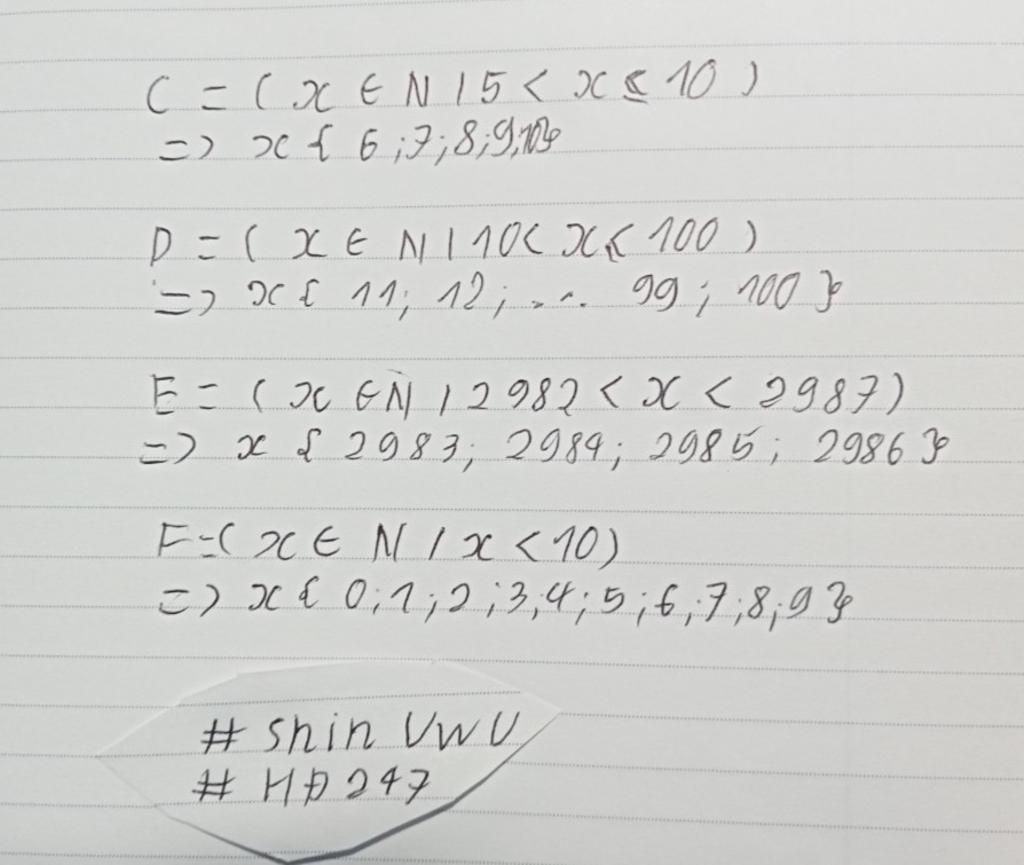 C = ( x ∈ N | 5 < x ≤ 10 )
=> x { 6 ; 7 ; 8 ; 9 ; 10 }
D = ( x ∈ N | 10 < x ≤ 100 )
=> x { 11 ; 12 ; ... 99 ; 100 }
E = ( x ∈ N | 2982 < x < 2987 )
=> x { 2983 ; 2984 ; 2985 ; 2986 }
F = ( x ∈ N / x < 10 )
=> x { 0 ; 1 ; 2 ; 3 ; 4 ; 5 ; 6 ; 7 ; 8 ; 9 }
# shin UwU
# HĐ247